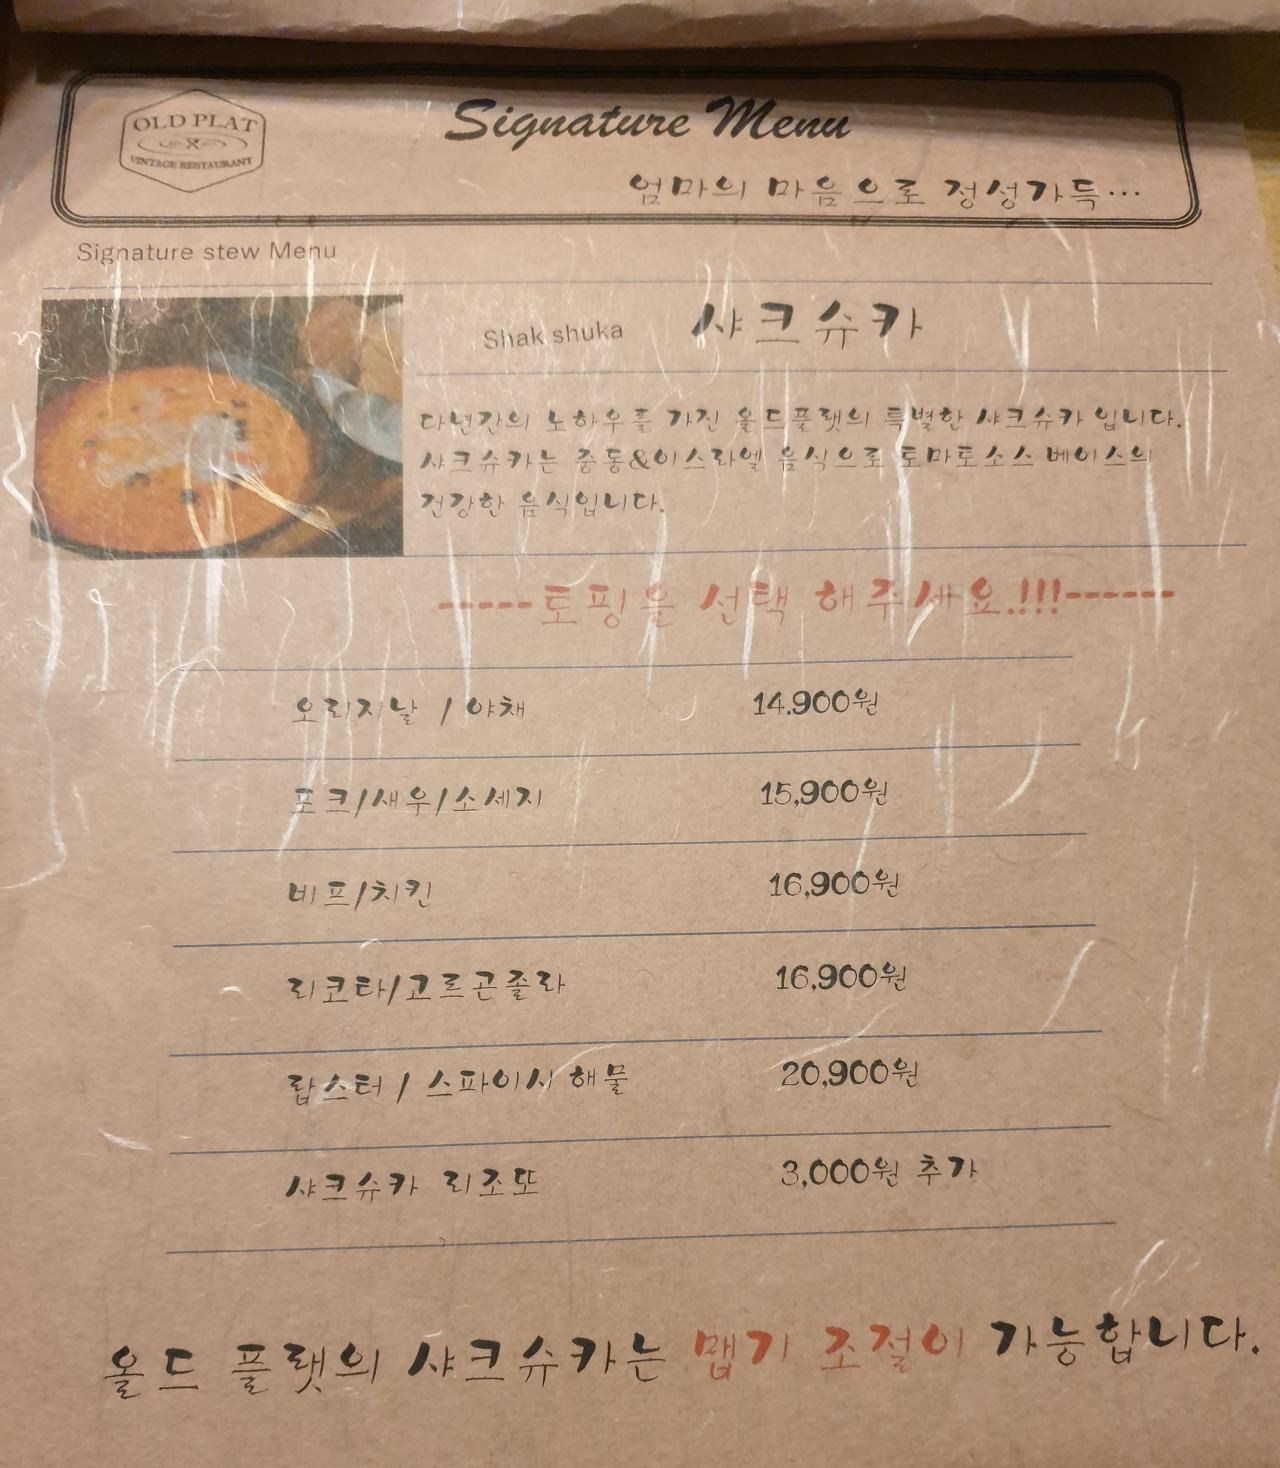 OLD PLAT
VINTAGE RESTAURANT
Signature Menu
엄마의 마음으로 정성가득...
Signature stew Menu
Shak shuka 샤크슈카
다년간의 노하우를 가진 올드플랫의 특별한 샤크슈카 입니다.
샤크슈카는 중동&이스라엘 음식으로 토마토소스 베이스의
건강한 음식입니다.
-----토핑을 선택 해주세요.!!!------
오리지날 / 야채 14.900원
포크/새우/소세지 15,900원
비프/치킨 16,900원
리코타/고르곤졸라 16,900원
랍스터 / 스파이시 해물 20,900원
샤크슈카 리조또 3,000원 추가
올드 플랫의 샤크슈카는 맵기 조절이 가능합니다.